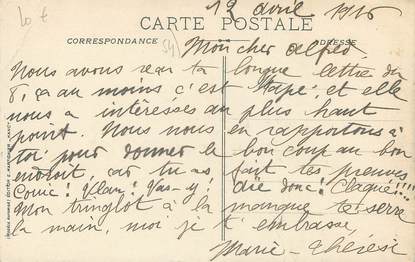 12 avril 1916
CARTE POSTALE
CORRESPONDANCE
ADRESSE
Mon cher Alfred
Nous avons reçu ta longue lettre du
8, ça au moins c'est "tapé", et elle
nous a intéressés au plus haut
point. Nous nous en rapportons à
toi pour donner le bon coup au bon
endroit, car tu as fait tes preuves
Couic! Vlan! Vas-y! dis donc! Claque!!!!
Mon tringlot à la manque te serre
la main, moi je t'embrasse,
Marie-Thérèse